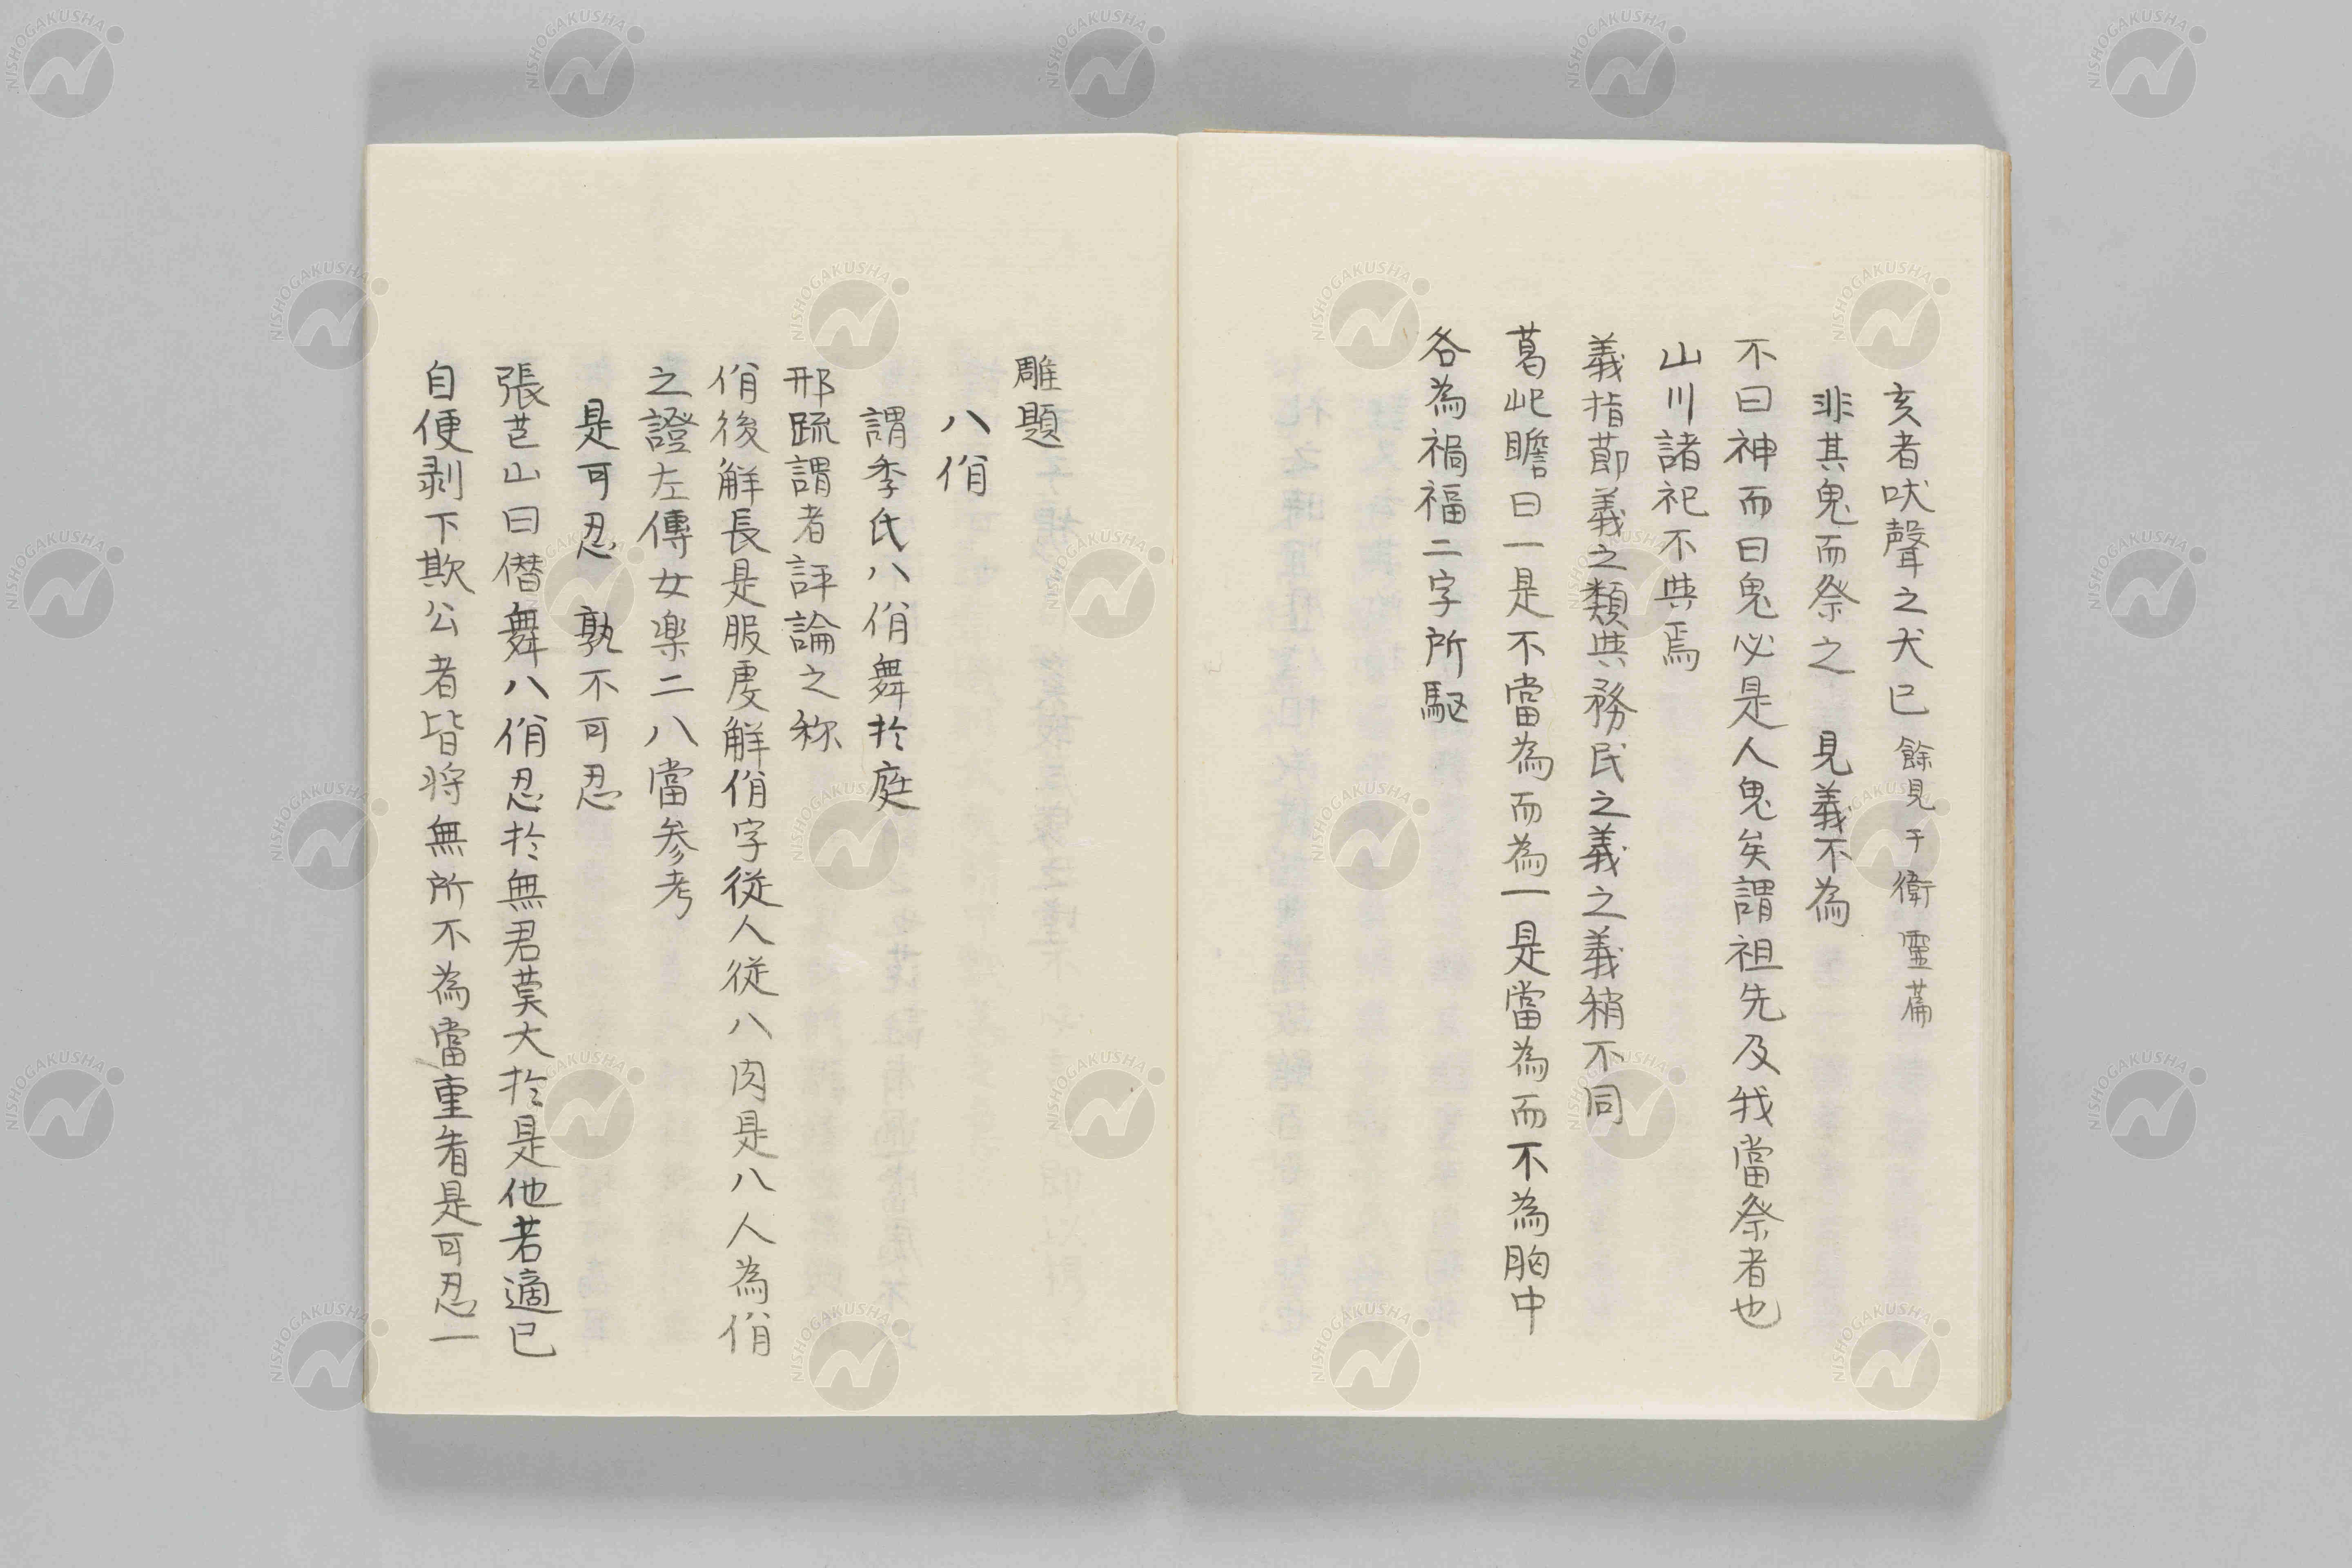 亥者吠聲之犬已 餘見于衛靈篇
非其鬼而祭之 見義不為
不曰神而曰鬼必是人鬼矣謂祖先及我當祭者也
山川諸祀不與焉
義指節義之類與務民之義之義稍不同
葛屺瞻曰一是不當為而為一是當為而不為胸中
各為禍福二字所駆
雕題
八佾
謂季氏八佾舞於庭
邢疏謂者評論之称
佾後觧長是服虔觧佾字從人従八肉是八人為佾
之證左傳女楽二八當参考
是可忍 孰不可忍
張芑山曰僭舞八佾忍於無君莫大於是他若適已
自便剥下欺公者皆将無所不為當重看是可忍一
NISHOGAKUSHA